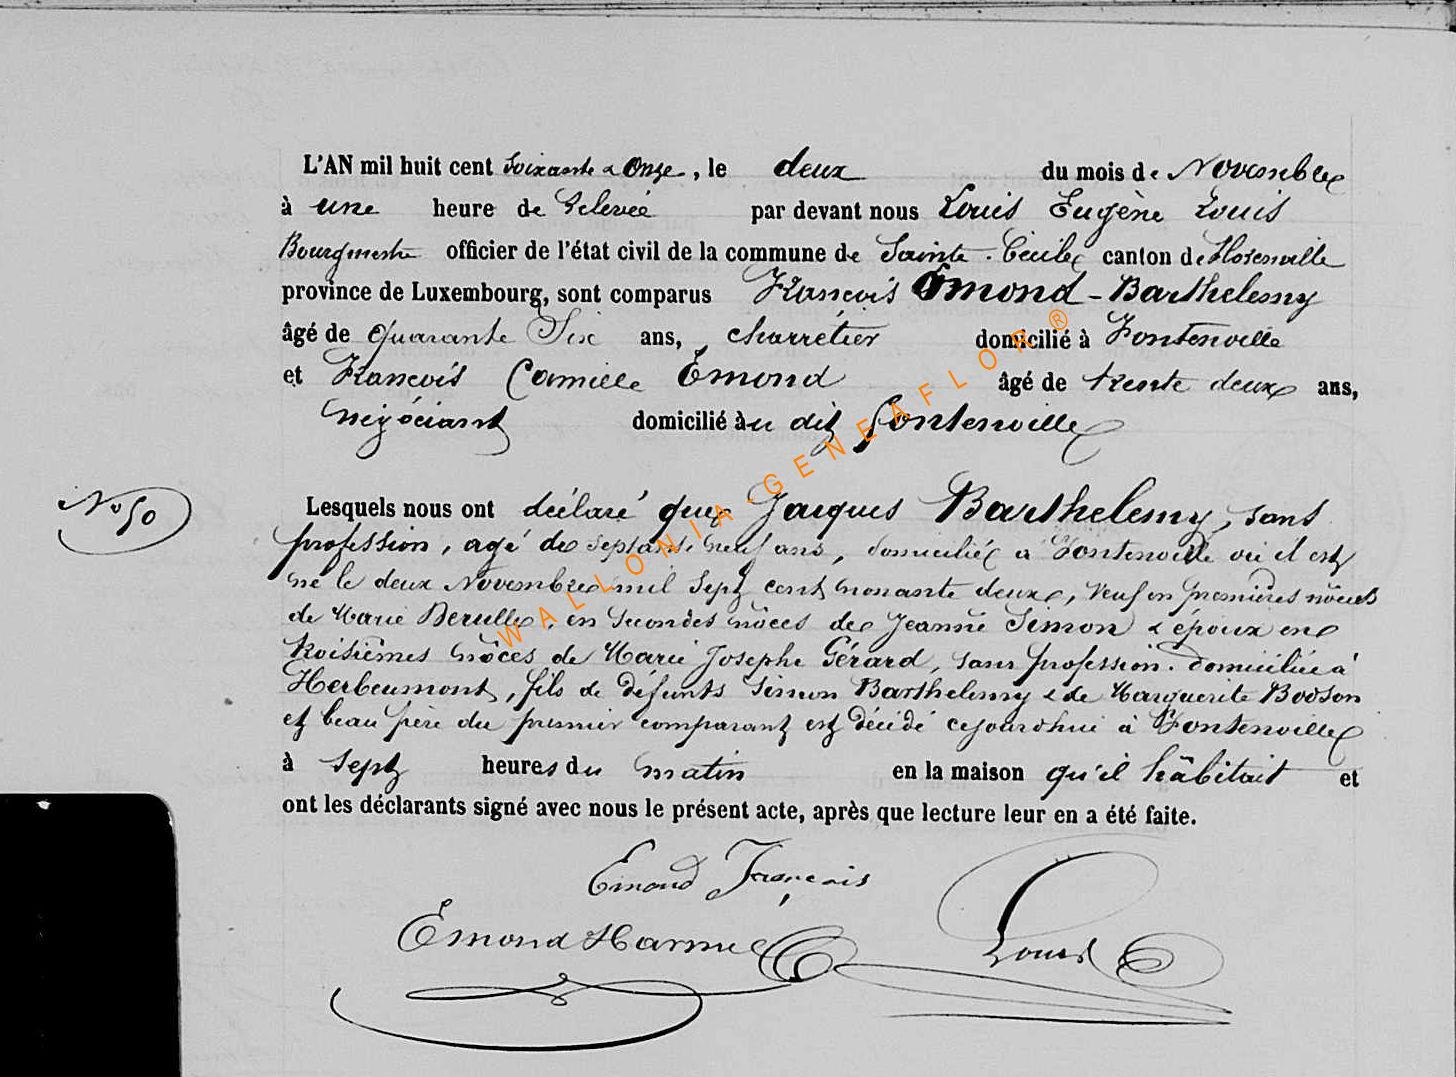 L'AN mil huit cent soixante & onze, le deux du mois de Novembre
à une heure de relevée par devant nous Louis Eugène Louis
Bourgmestre officier de l'état civil de la commune de Sainte-Cécile canton de Florenville
province de Luxembourg, sont comparus François Emond-Barthelemy
âgé de quarante Six ans, charrétier domicilié à Fontenoille
et François Camille Emond âgé de trente deux ans,
négociant domicilié au dit fontenoille
N° 50
Lesquels nous ont déclaré que Jacques Barthelemy, sans
profession, agé de septante neuf ans, domicilié à Fontenoille où il est
né le deux Novembre mil sept cent nonante deux, veuf en premières nôces
de Marie Berulle, en secondes nôces de Jeanne Simon & époux en
troisièmes nôces de Marie Josephe Gérard, sans profession. domiciliée à
Herbeumont, fils de défunts Simon Barthelemy & de Marguerite Bodson
et beau père du premier comparant est décédé cejourdhui à Fontenoille
à sept heures du matin en la maison qu'il hâbitait et
ont les déclarants signé avec nous le présent acte, après que lecture leur en a été faite.
Emond François
Emond Louis
WALLONIA-GENEAFLOR ®